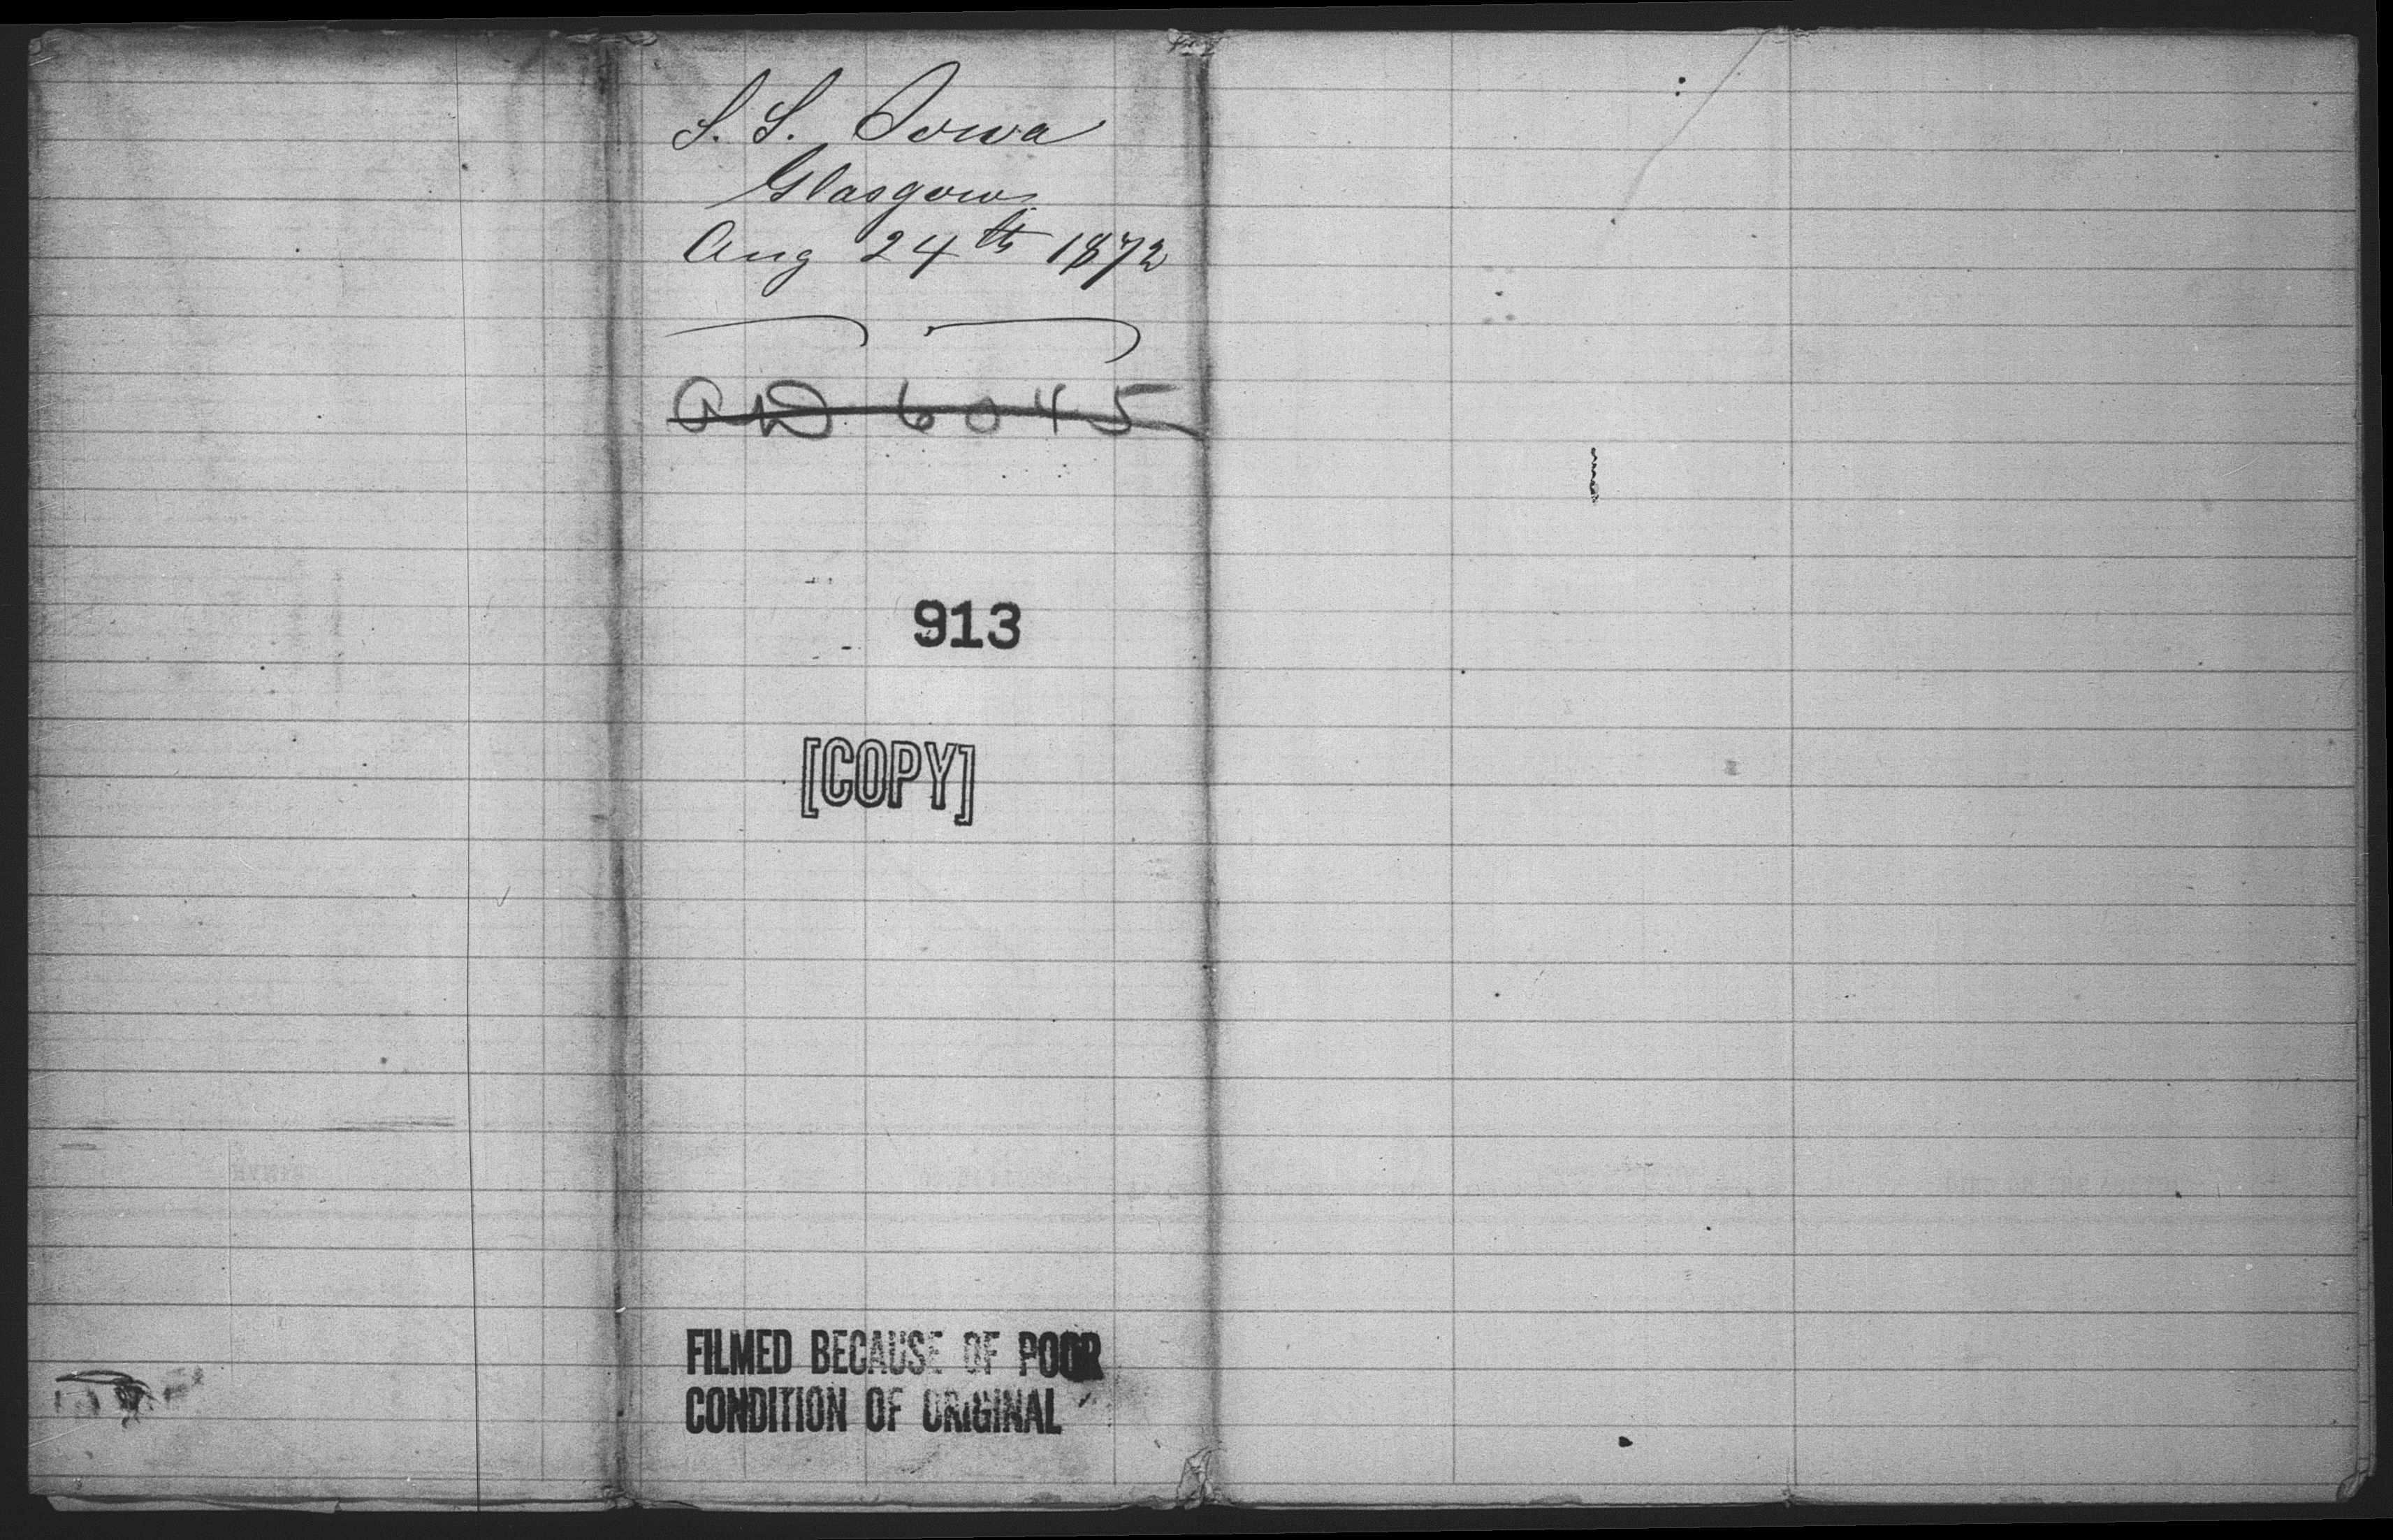 S. S. Iowa
Glasgow
Aug 24th 1872
6045
913
[COPY]
FILMED BECAUSE OF POOR
CONDITION OF ORIGINAL